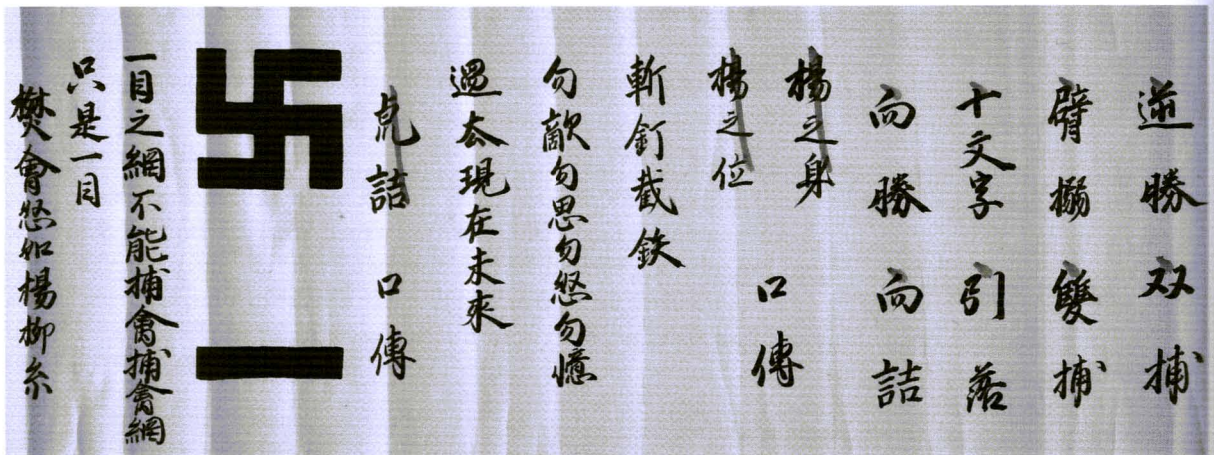 逆勝双捕
臂搦雙捕
十文字引落
向勝向詰
楊之身
楊之位
口傳
斬釘截鉄
勿敵勿思勿悠勿憶
過去現在未來
皃詰 口傳
卐 一
一目之網不能捕禽捕禽網
只是一目
樊會悠如楊柳糸